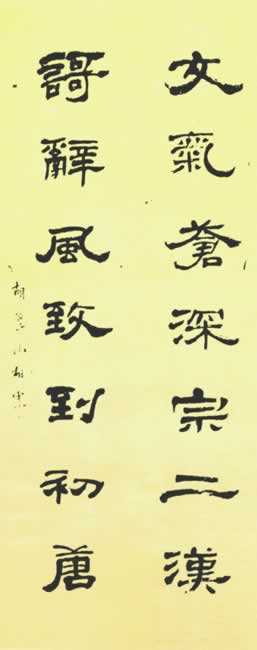 文氣蒼深宗二漢
謌辭風致到初唐